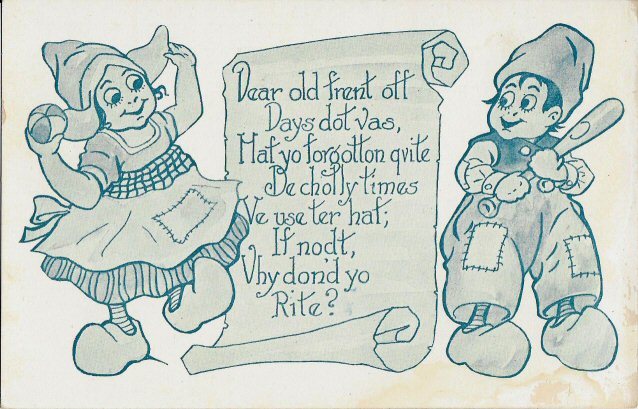 Dear old frent off
Days dot vas,
Haf yo forgotton qvite
De cholly times
Ve use ter haf;
If nodt,
Vhy don'd yo
Rite?